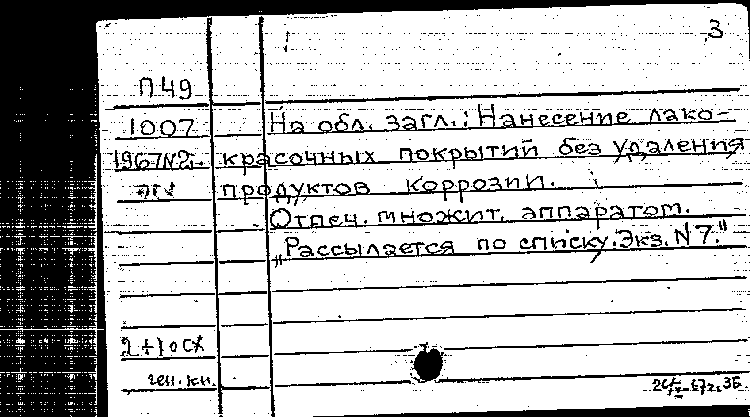 3
П49
1007
На обл. загл.: Нанесение лако-
1967 N2.
красочных покрытий без удаления
продуктов коррозии.
Отпеч. множит. аппаратом.
„Рассылается по списку. Экз. N 7."
2+1 осх
ген. кн.